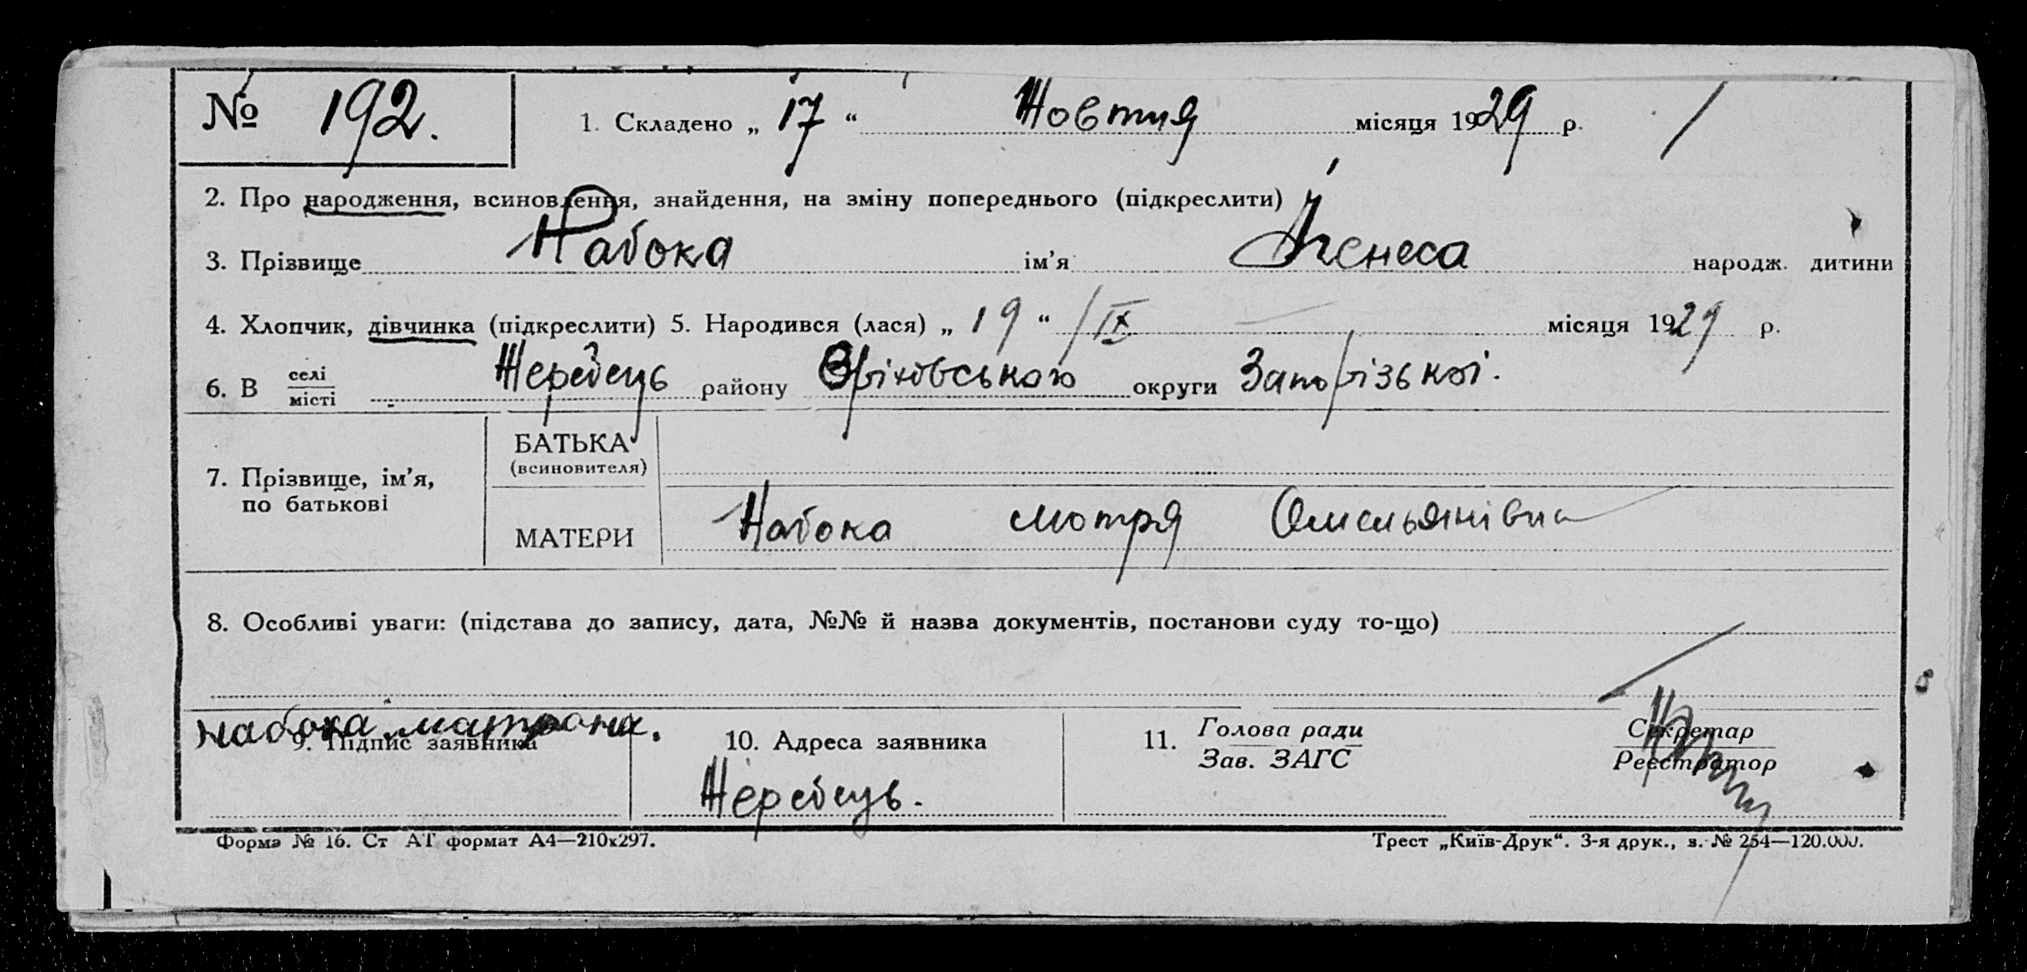 № 192. 1. Складено „ 17 “ Жовтня місяця 1929 р.
2. Про народження, всиновлення, знайдення, на зміну попереднього (підкреслити)
3. Прізвище Набока ім’я народж. дитини
4. Хлопчик, дівчинка (підкреслити) 5. Народився (лася) „ 19 “ /IX місяця 1929 р.
6. В селі Жеребець району Оріхівського округи Запорізької.
місті
БАТЬКА
(всиновителя)
7. Прізвище, ім’я,
по батькові
МАТЕРИ Набока Мотря Омельянівна
8. Особливі уваги: (підстава до запису, дата, №№ й назва документів, постанови суду то-що)
Набока Матрона.
9. Підпис заявника 10. Адреса заявника 11. Голова ради Секретар
Зав. ЗАГС Реєстратор
Жеребець.
Форма № 16. Ст АТ формат А4—210х297. Трест „Київ-Друк“. 3-я друк., з. № 254—120.000.